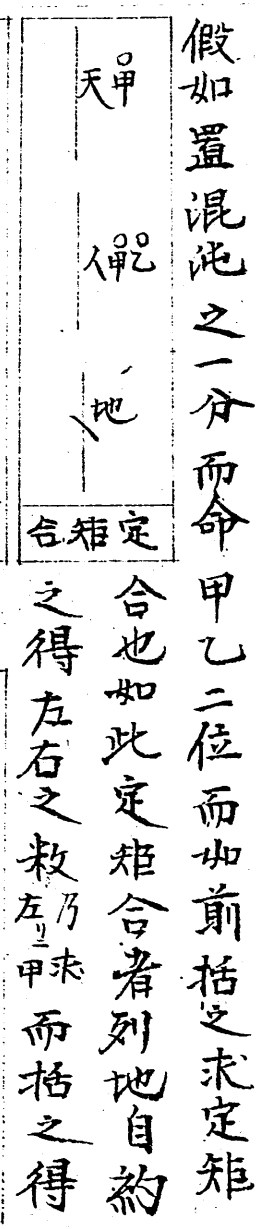 假如置混沌之一分而命甲乙二位而如前括之求定矩
合也如此定矩合者列地自約
之得左右之数乃求左リニ甲而括之得
天甲
人甲乙
地
定矩合